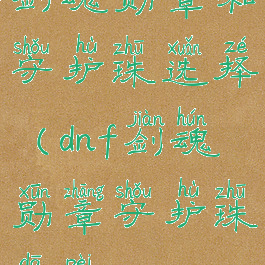 剑魂勋章和
shǒu hù zhū xuǎn zé
守护珠选择
jiàn hún
(dnf剑魂
xūn zhāng shǒu hù zhū
勋章守护珠
dā pèi